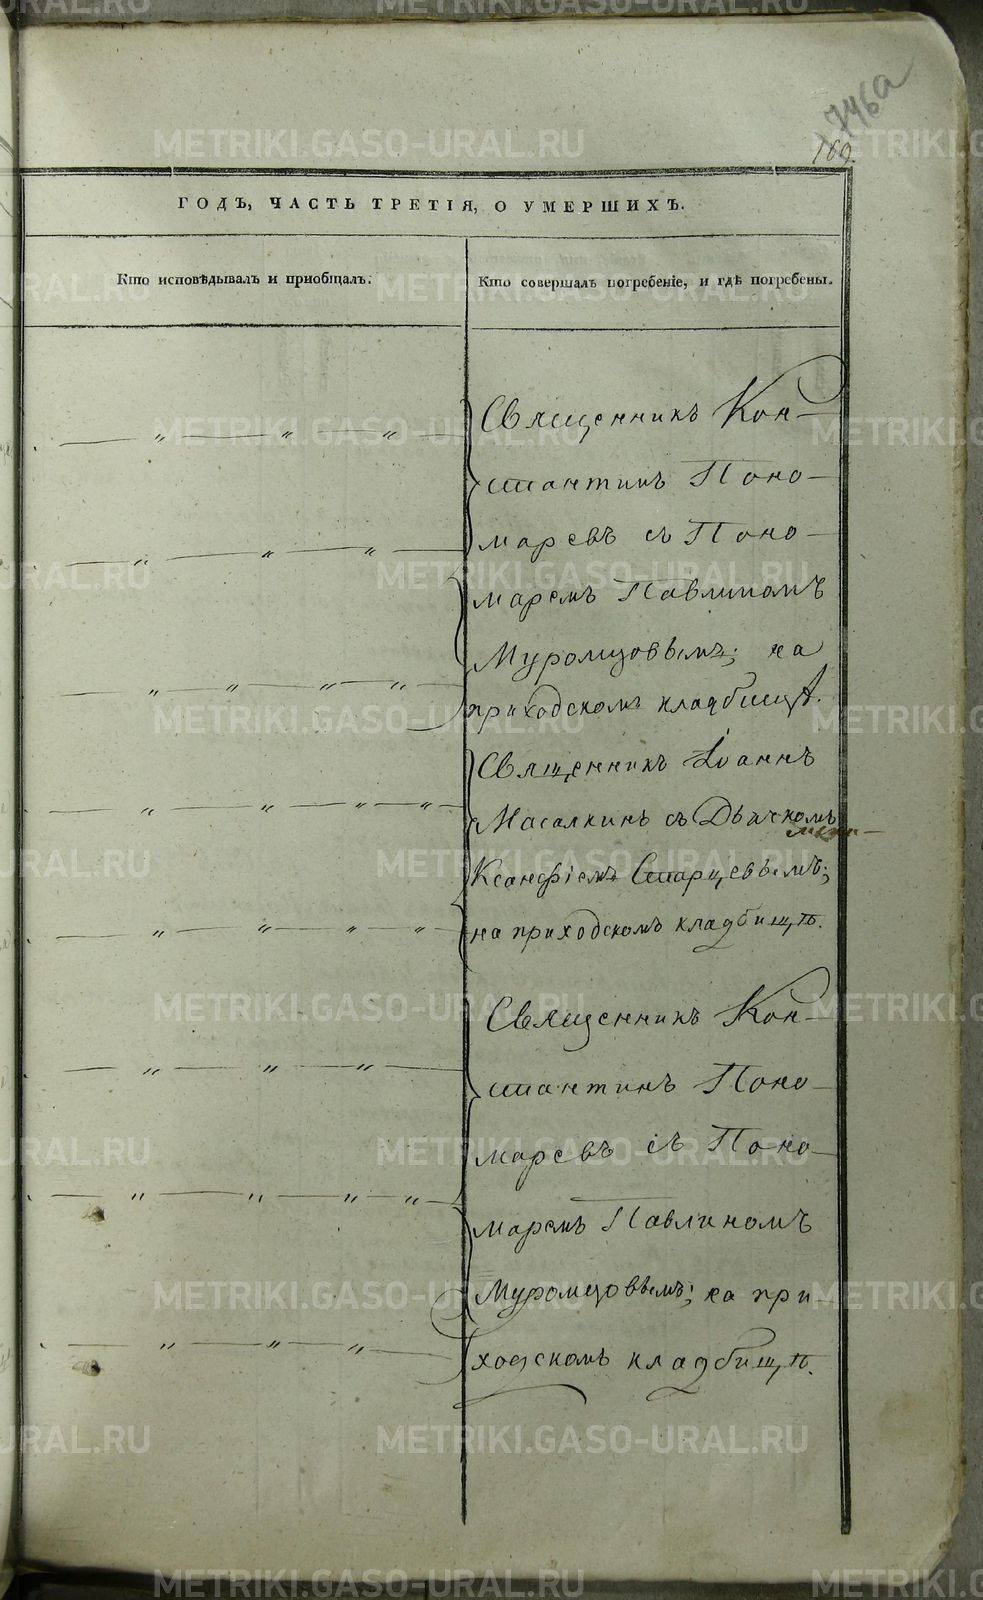 746а
169.
ГОДЪ, ЧАСТЬ ТРЕТІЯ, О УМЕРШИХЪ.
Кто исповѣдывалъ и приобщалъ:
Кто совершалъ погребеніе, и гдѣ погребены.
Священникъ Кон-
стантинъ Поно-
маревъ съ Поно-
маремъ Павлиномъ
Муромцовымъ; на
приходскомъ кладбищѣ.
Священникъ Іоаннъ
Масалкинъ съ Дьячкомъ
Ксанфіемъ Старцевымъ;
на приходскомъ кладбищѣ.
Священникъ Кон-
стантинъ Поно-
маревъ съ Поно-
маремъ Павлиномъ
Муромцовымъ; на при-
ходскомъ кладбищѣ.
METRIKI.GASO-URAL.RU